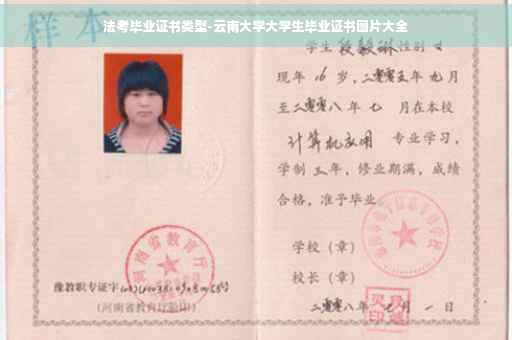 样本
法考毕业证书类型-云南大学大学生毕业证书图片大全
学生 段毅琳 性别 女
现年 16 岁，二零零五年 九 月
至二零零八年 七 月在本校
计算机应用 专业学习，
学制 三 年，修业期满，成绩
合格，准予毕业
学校（章）
校长（章）
二零零八年 七 月 一 日
河南省教育厅
豫教职专证字
（河南省教育厅验印）